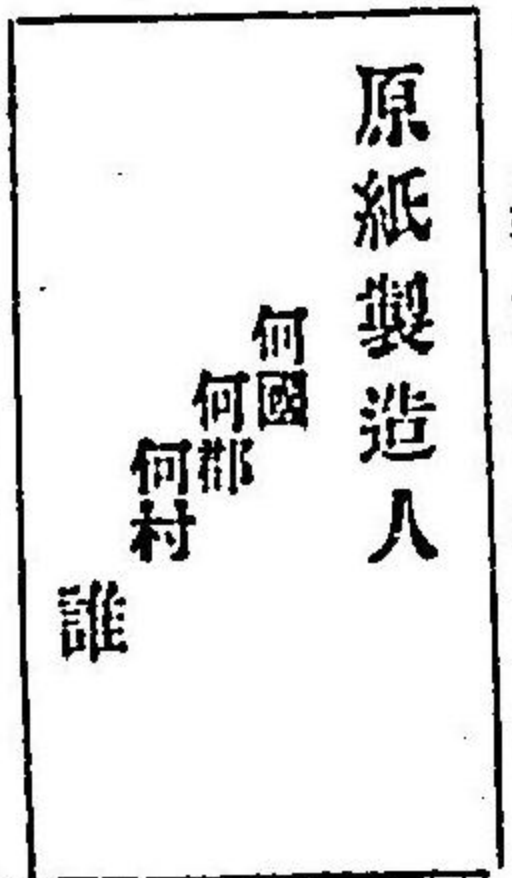 原紙製造人
何國
何郡
何村
誰